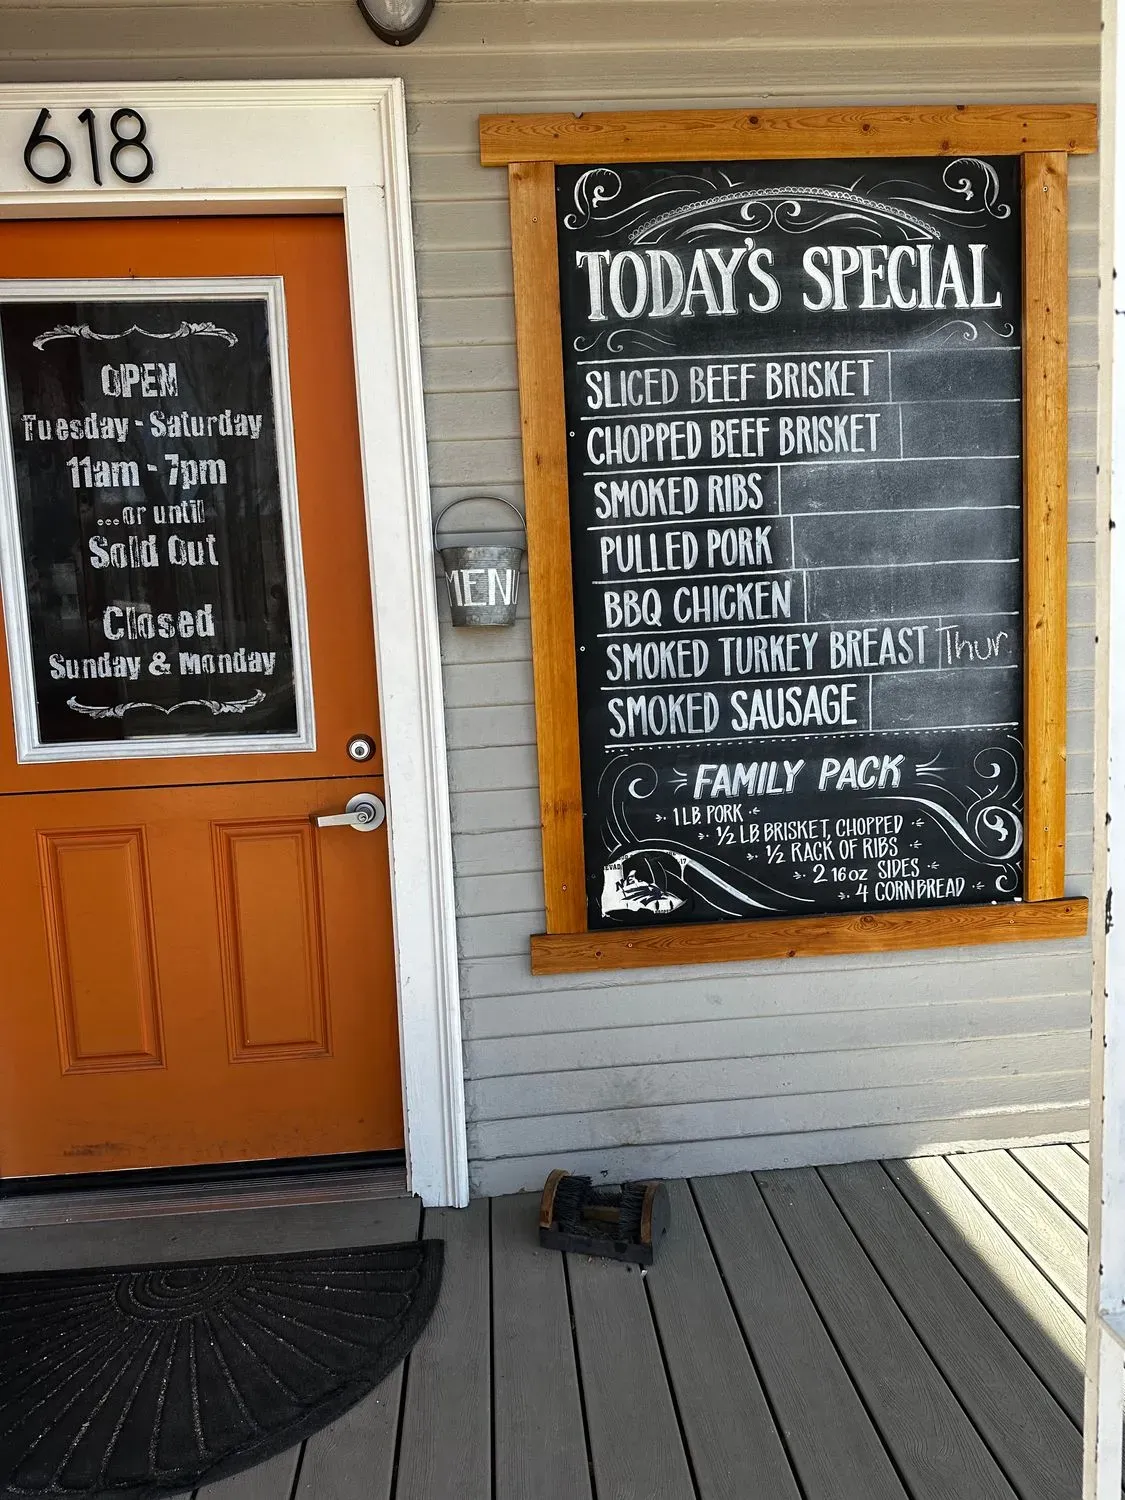 618
OPEN
Tuesday - Saturday
11am - 7pm
...or until
Sold Out
Closed
Sunday & Monday
MENU
TODAY'S SPECIAL
SLICED BEEF BRISKET
CHOPPED BEEF BRISKET
SMOKED RIBS
PULLED PORK
BBQ CHICKEN
SMOKED TURKEY BREAST Thur.
SMOKED SAUSAGE
FAMILY PACK
1 LB PORK
½ LB. BRISKET, CHOPPED
½ RACK OF RIBS
2 16 oz SIDES
4 CORNBREAD